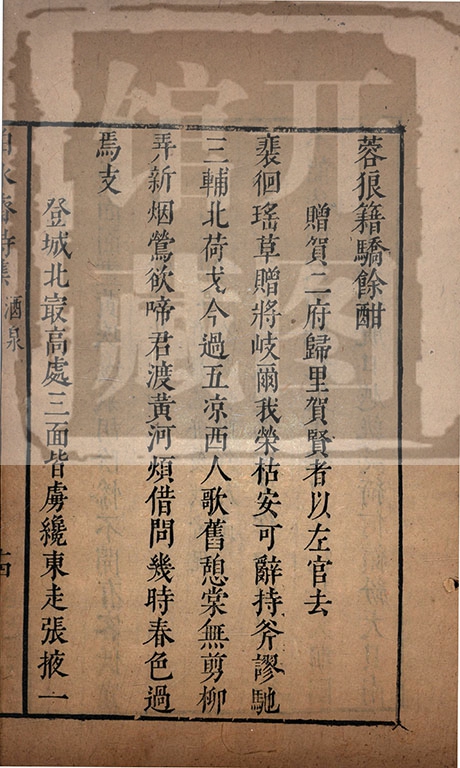 蓉狼籍驕餘酣
贈賀二府歸里賀賢者以左官去
裴徊瑤草贈將岐爾我榮枯安可辭持斧謬馳
三輔北荷戈今過五凉西人歌舊憩棠無剪柳
弄新烟鶯欲啼君渡黃河煩借問幾時春色過
焉支
登城北㝡高處三面皆虜纔東走張掖一
酒泉
开图
馆藏